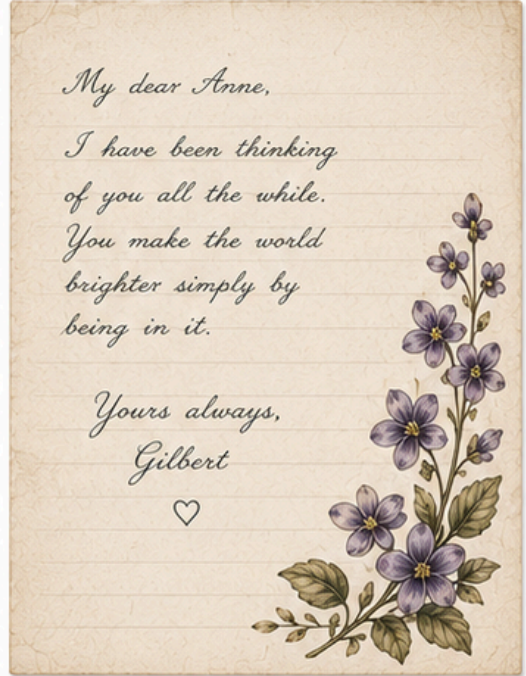 My dear Anne,
I have been thinking
of you all the while.
You make the world
brighter simply by
being in it.
Yours always,
Gilbert